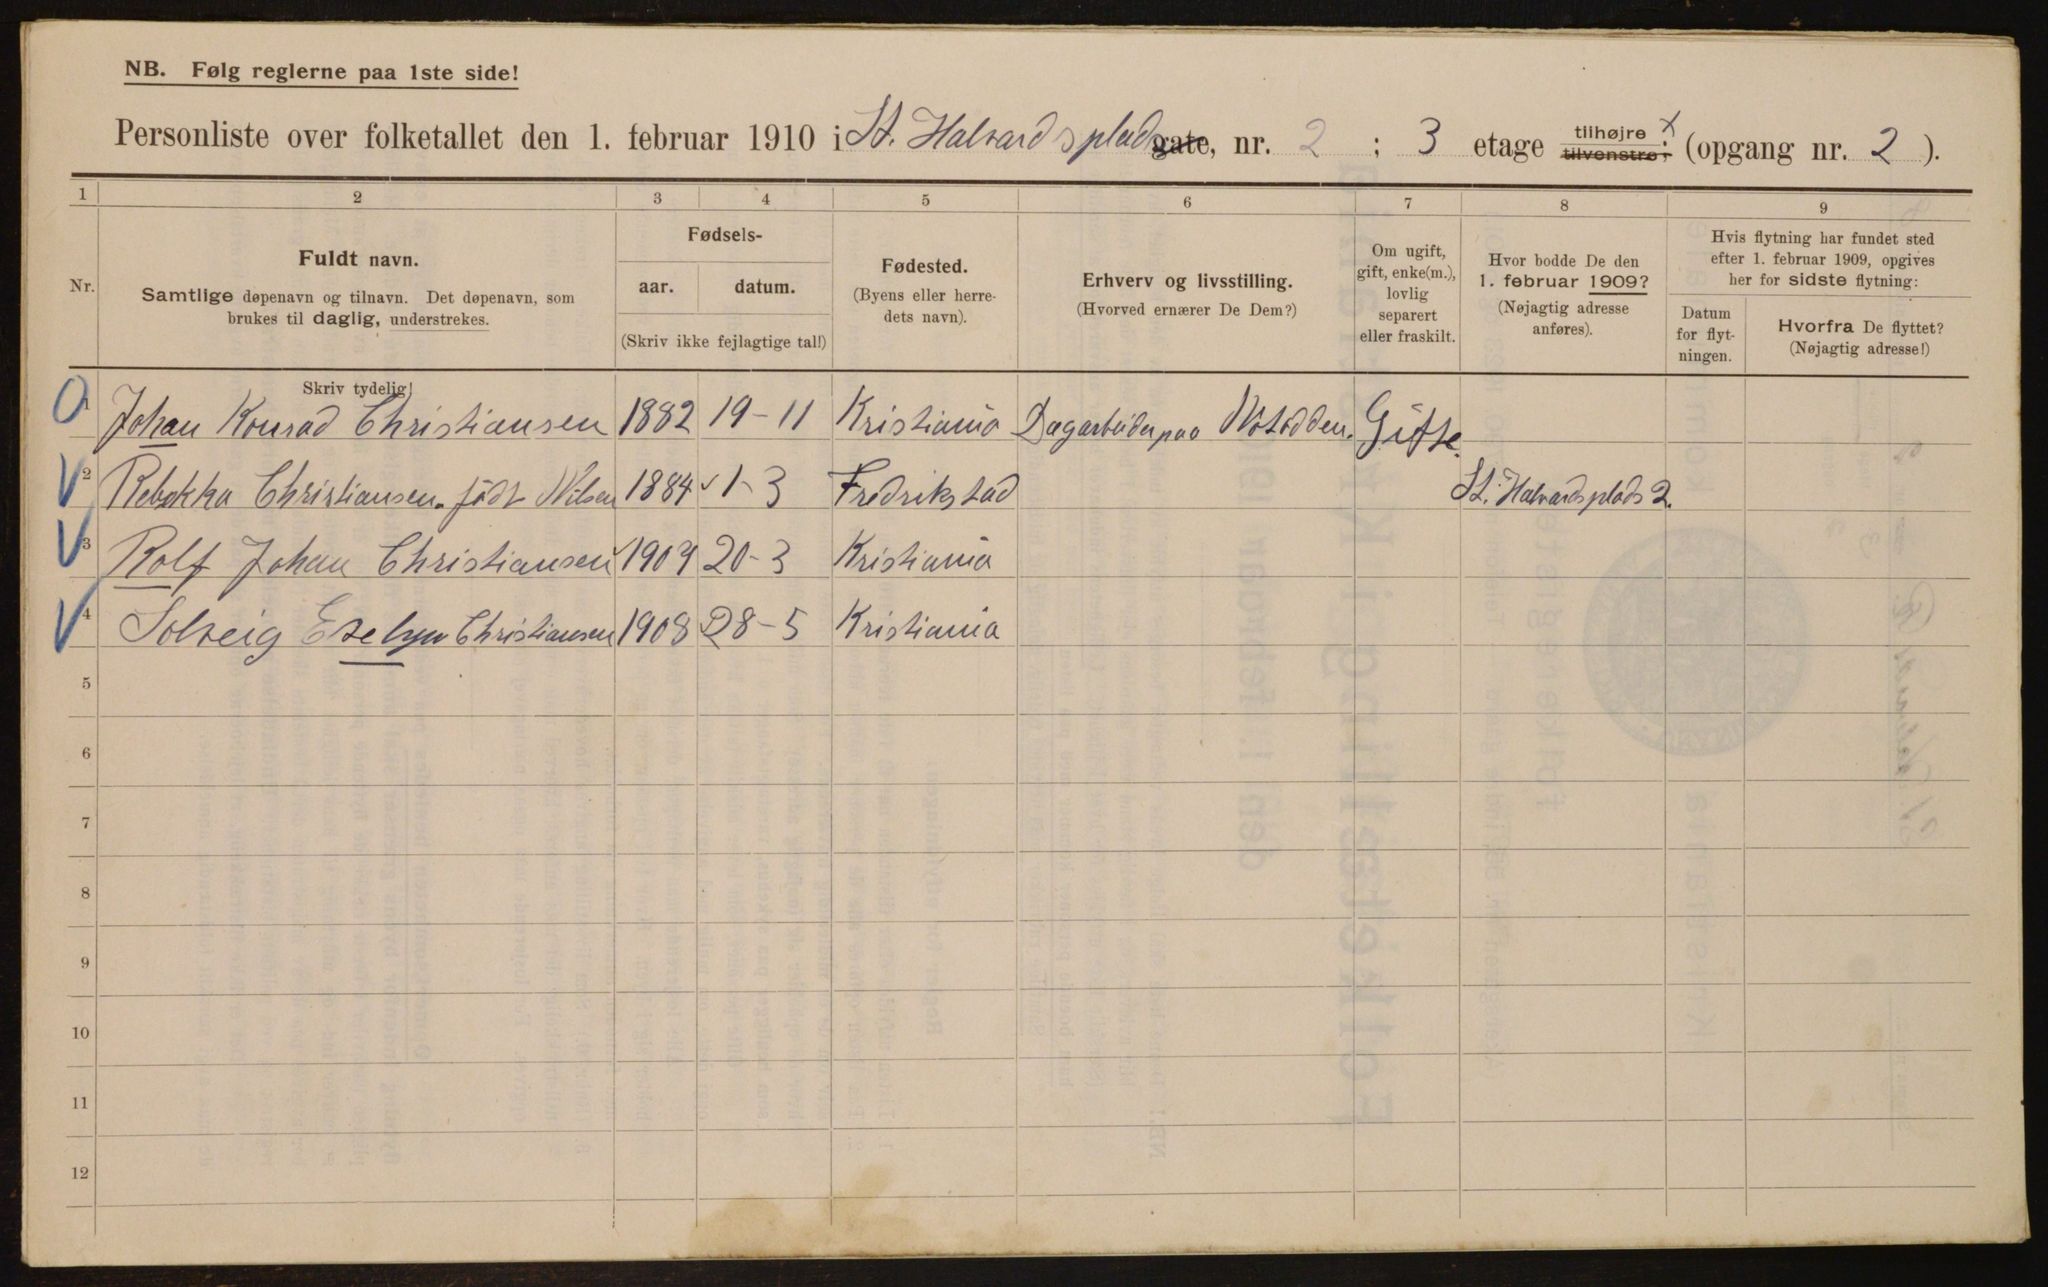 NB. Følg reglerne paa 1ste side!
Personliste over folketallet den 1. februar 1910 i St. Halvardsplads gate, nr. 2 ; 3 etage tilhøjre x tilvenstre; (opgang nr. 2 ).
1 2 3 4 5 6 7 8 9
Nr.
Fuldt navn.
Samtlige døpenavn og tilnavn. Det døpenavn, som
brukes til daglig, understrekes.
Fødsels-
aar. datum.
(Skriv ikke fejlagtige tal!)
Fødested.
(Byens eller herre-
dets navn).
Erhverv og livsstilling.
(Hvorved ernærer De Dem?)
Om ugift,
gift, enke(m.),
lovlig
separert
eller fraskilt.
Hvor bodde De den
1. februar 1909?
(Nøjagtig adresse
anføres).
Hvis flytning har fundet sted
efter 1. februar 1909, opgives
her for sidste flytning:
Datum
for flyt-
ningen.
Hvorfra De flyttet?
(Nøjagtig adresse!)
Skriv tydelig!
1 Johan Konrad Christiansen 1882 19-11 Kristiania Dagarbeider paa Notodden. Gifte.
2 Rebekka Christiansen. født Nilsen 1884 1-3 Fredrikstad St. Halvardsplads 2.
3 Rolf Johan Christiansen 1904 20-3 Kristiania
4 Solveig Evelyn Christiansen 1908 28-5 Kristiania
5
6
7
8
9
10
11
12